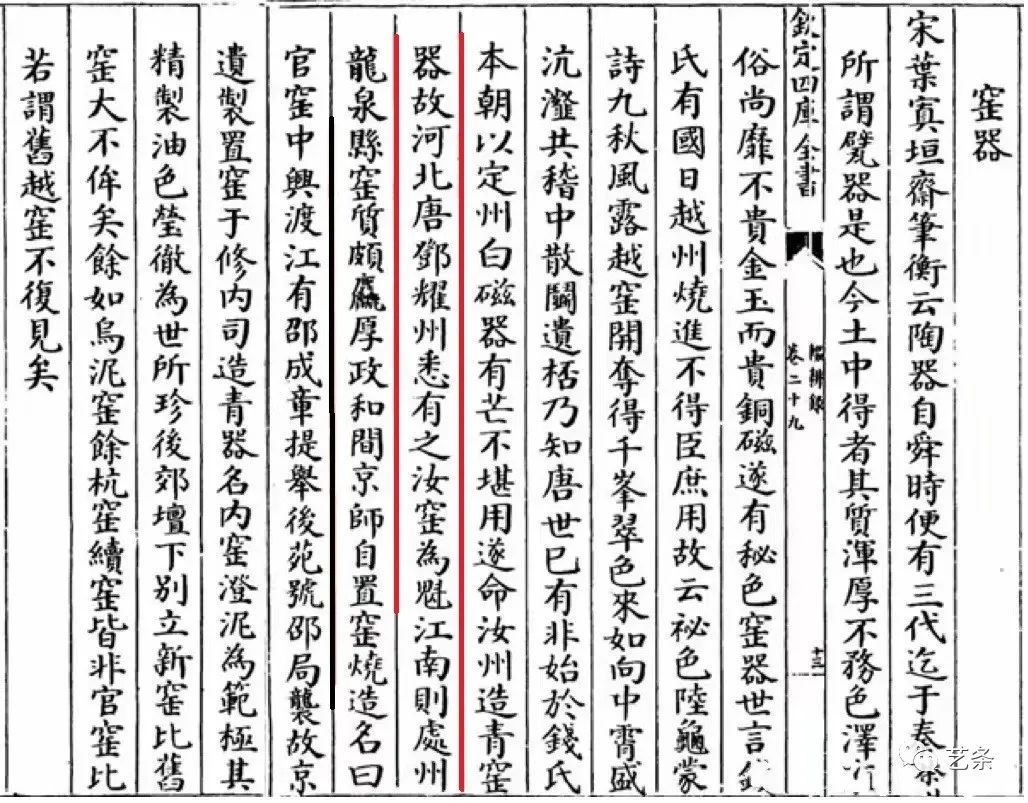 窑器
宋葉寘垣齋筆衡云陶器自舜時便有三代迄于秦
所謂甓器是也今土中得者其質渾厚不務色澤
欽定四庫全書
輟耕錄
卷二十九
十三
俗尚靡不貴金玉而貴銅磁遂有秘色窑器世言錢
氏有國日越州燒進不得臣庶用故云祕色陸龜蒙
詩九秋風露越窑開奪得千峯翠色來如向中霄盛
沆瀣共稽中散鬭遺桮乃知唐世已有非始於錢氏
本朝以定州白磁器有芒不堪用遂命汝州造青窑
器故河北唐鄧耀州悉有之汝窑為魁江南則處州
龍泉縣窑質頗麤厚政和間京師自置窑燒造名曰
官窑中興渡江有邵成章提舉後苑號邵局襲故京
遺製置窑于修內司造青器名內窑澄泥為範極其
精製油色瑩徹為世所珍後郊壇下別立新窑比舊
窑大不侔矣餘如烏泥窑餘杭窑續窑皆非官窑比
若謂舊越窑不復見矣
艺条